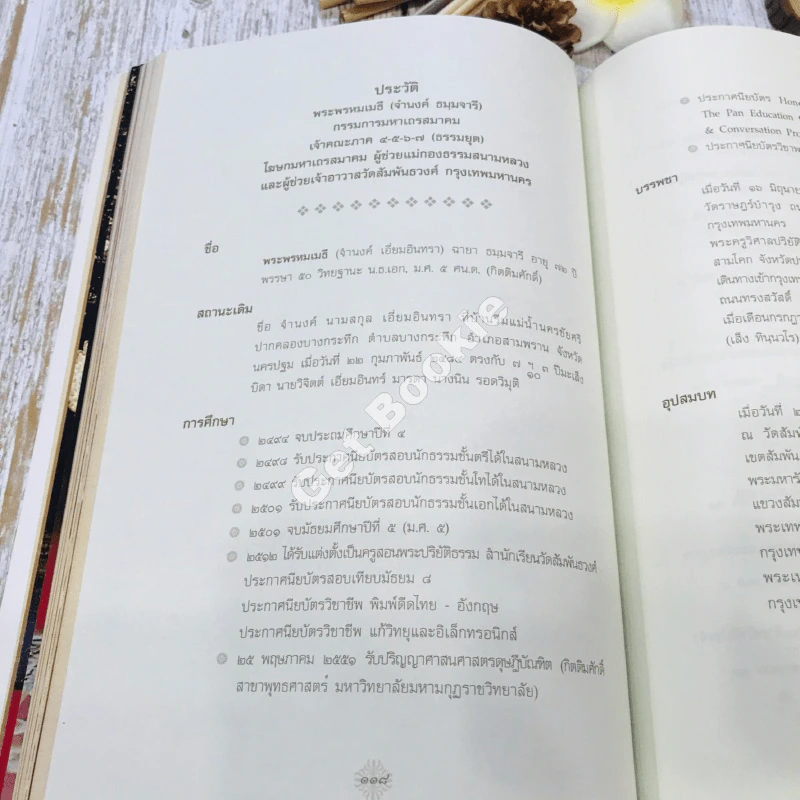 ประวัติ
พระพรหมเมธี (จำนงค์ ธมฺมจารี)
กรรมการมหาเถรสมาคม
เจ้าคณะภาค ๔-๕-๖-๗ (ธรรมยุต)
โฆษกมหาเถรสมาคม ผู้ช่วยแม่กองธรรมสนามหลวง
และผู้ช่วยเจ้าอาวาสวัดสัมพันธวงศ์ กรุงเทพมหานคร
ชื่อ
พระพรหมเมธี (จำนงค์ เอี่ยมอินทรา) ฉายา ธมฺมจารี อายุ ๗๒ ปี
พรรษา ๕๐ วิทยฐานะ น.ธ.เอก, ม.ศ. ๕ ศน.ด. (กิตติมศักดิ์)
สถานะเดิม
ชื่อ จำนงค์ นามสกุล เอี่ยมอินทรา ที่บ้านริมแม่น้ำนครชัยศรี
ปากคลองบางกระทึก ตำบลบางกระทึก อำเภอสามพราน จังหวัด
นครปฐม เมื่อวันที่ ๒๒ กุมภาพันธ์ ตรงกับ ปีมะเส็ง
บิดา นายวิจิตต์ เอี่ยมอินทร์ มารดา นางนิน รอดวิมุติ
การศึกษา
๒๔๙๔ จบประถมศึกษาปีที่ ๔
๒๔๙๘ รับประกาศนียบัตรสอบนักธรรมชั้นตรีได้ในสนามหลวง
๒๔๙๙ รับประกาศนียบัตรสอบนักธรรมชั้นโทได้ในสนามหลวง
๒๕๐๑ รับประกาศนียบัตรสอบนักธรรมชั้นเอกได้ในสนามหลวง
๒๕๐๑ จบมัธยมศึกษาปีที่ ๕ (ม.ศ. ๕)
๒๕๑๒ ได้รับแต่งตั้งเป็นครูสอนพระปริยัติธรรม สำนักเรียนวัดสัมพันธวงศ์
ประกาศนียบัตรสอบเทียบมัธยม ๘
ประกาศนียบัตรวิชาชีพ พิมพ์ดีดไทย - อังกฤษ
ประกาศนียบัตรวิชาชีพ แก้วิทยุและอิเล็กทรอนิกส์
๒๕ พฤษภาคม ๒๕๕๑ รับปริญญาศาสนศาสตรดุษฎีบัณฑิต (กิตติมศักดิ์
สาขาพุทธศาสตร์ มหาวิทยาลัยมหามกุฏราชวิทยาลัย)
๑๑๘
ประกาศนียบัตร Hono
The Pan Education
& Conversation Pr
ประกาศนียบัตรวิชาพ
บรรพชา
เมื่อวันที่ ๑๖ มิถุนาย
วัดราษฎร์บำรุง ถน
กรุงเทพมหานคร
พระครูวิศาลปริยัติ
สามโคก จังหวัดป
เดินทางเข้ากรุงเทพ
ถนนทรงสวัสดิ์
เมื่อเดือนกรกฎา
(เส็ง ทินฺนวโร)
อุปสมบท
เมื่อวันที่ ๒
ณ วัดสัมพั
เขตสัมพัน
พระมหารั
แขวงสัม
พระเทพ
กรุงเท
พระเน
กรุงเท
Get Bookie